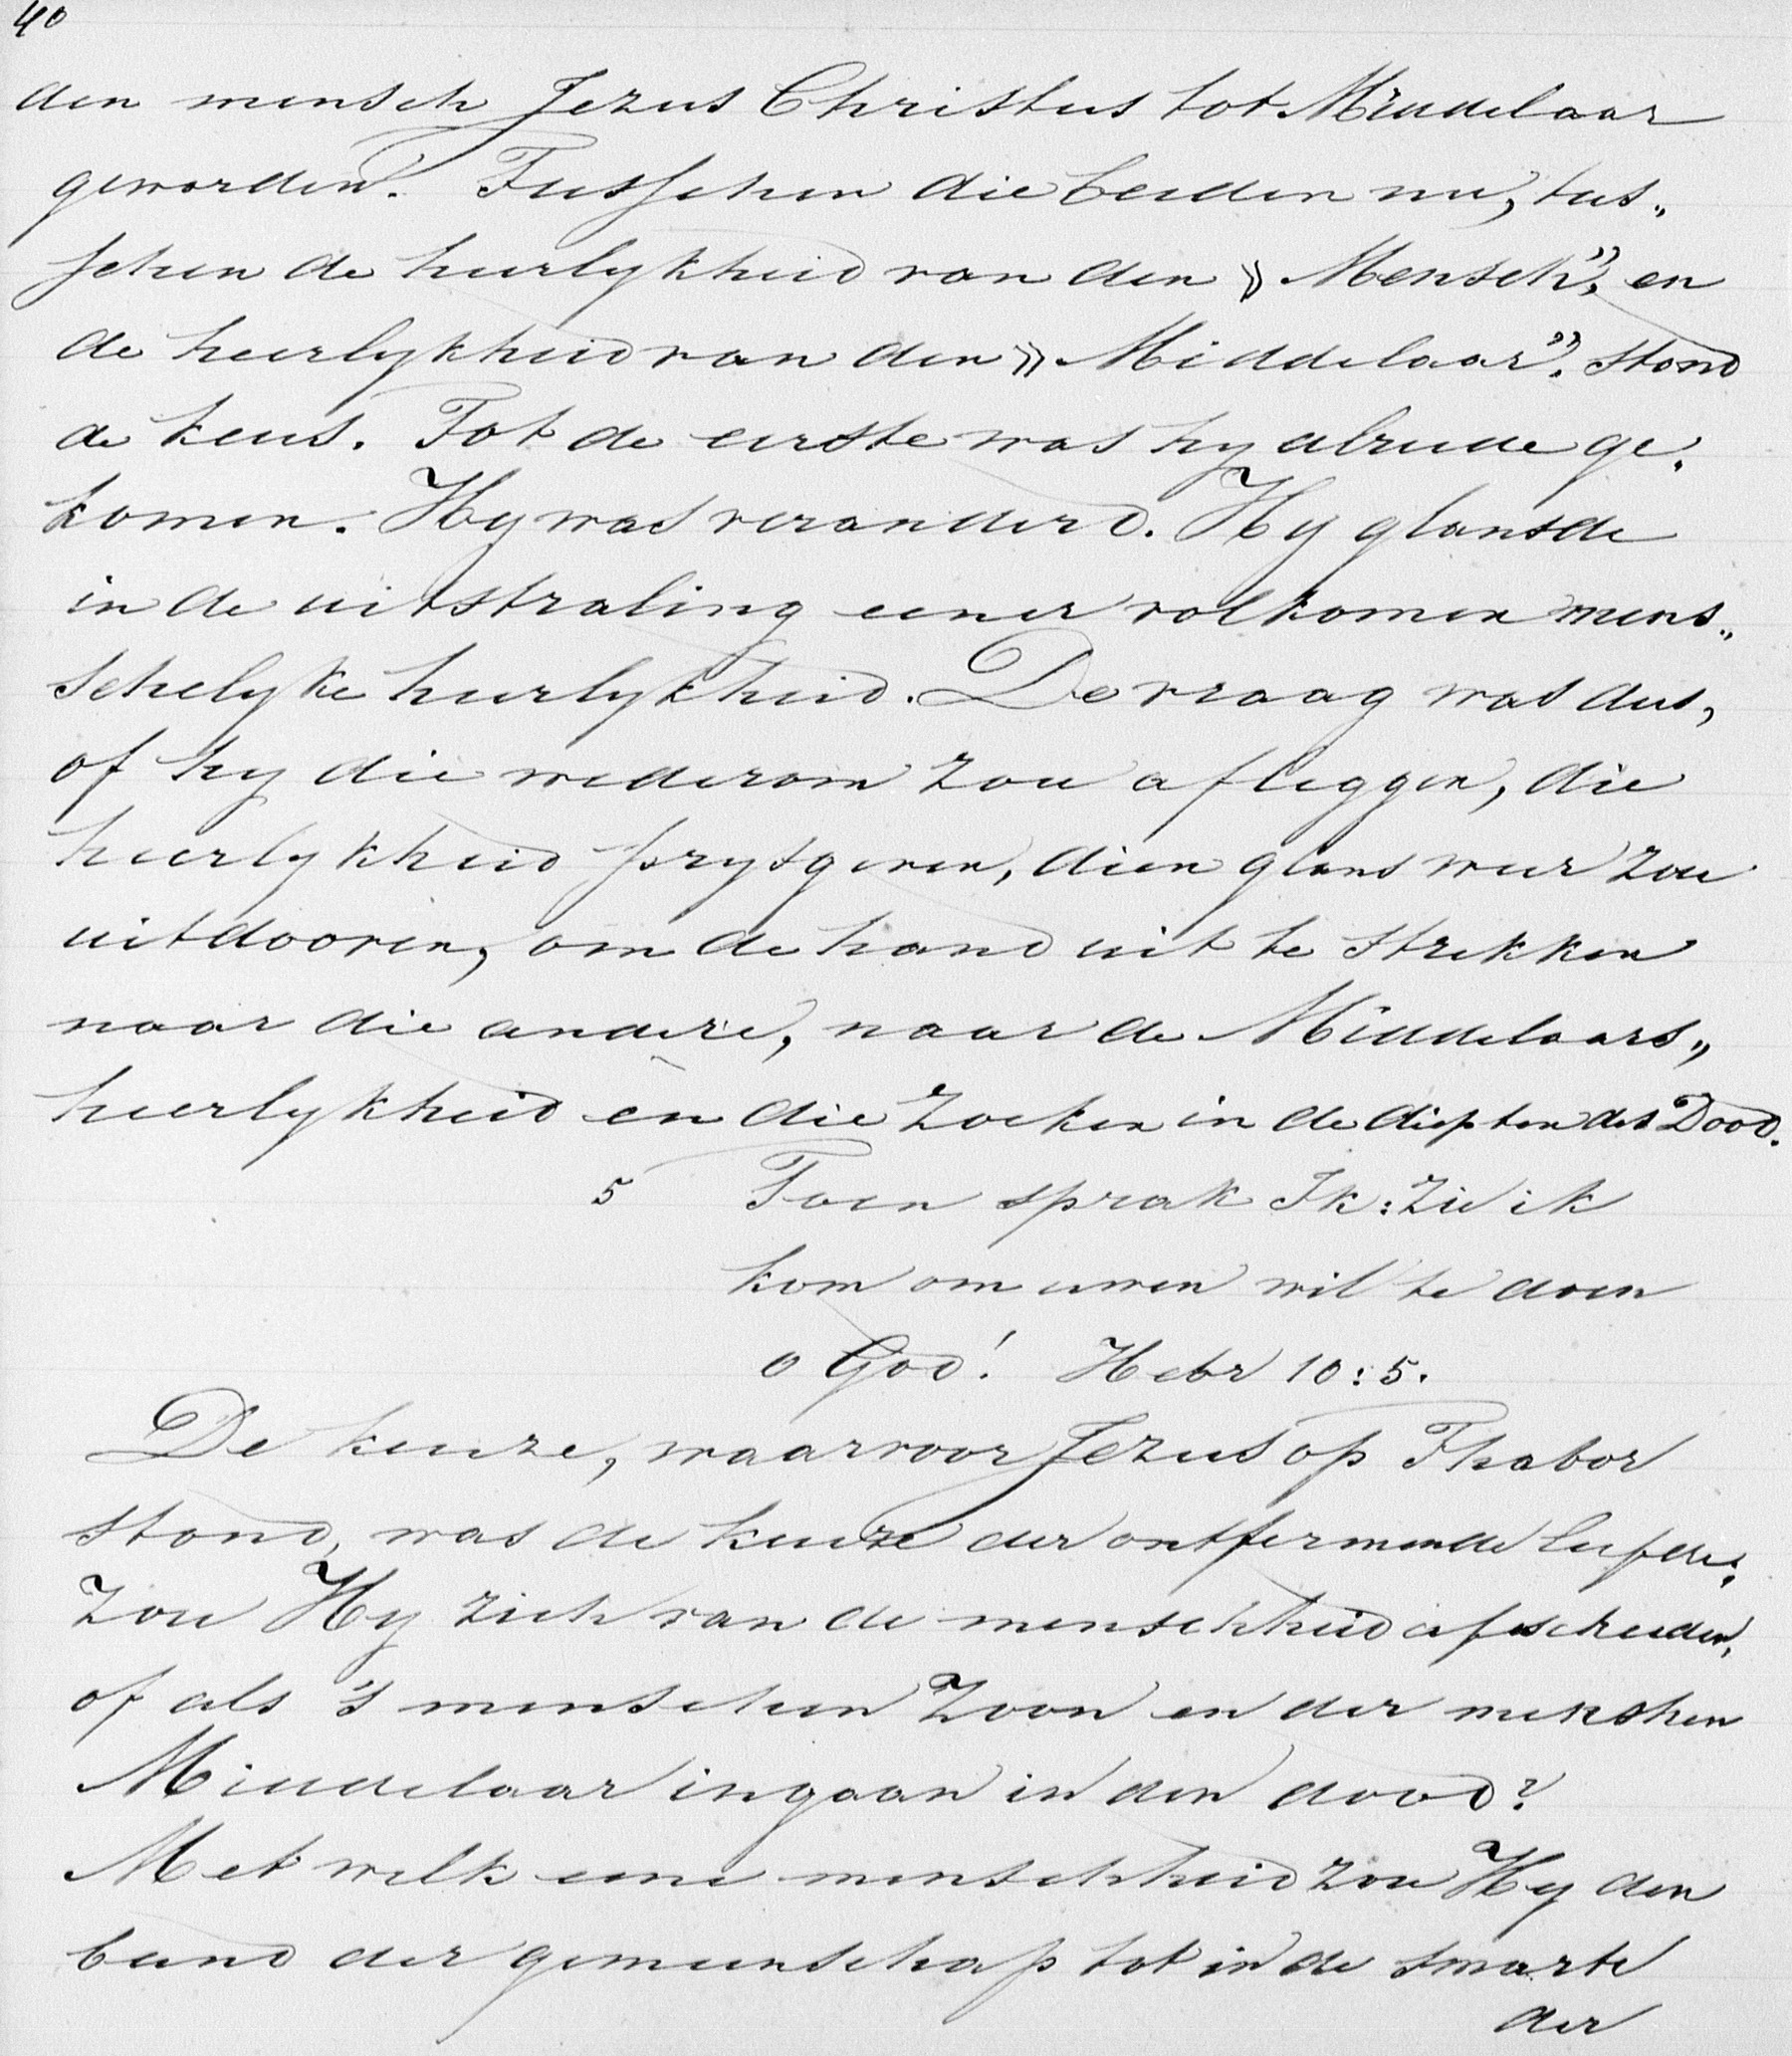 40
den mensch Jezus Christus tot Middelaar
geworden. Tusschen die beiden nu, tus„
schen de heerlykheid van den » Mensch", en
de heerlykheid van den » Middelaar". stond
de keus. Tot de eerste was hy alreede ge„
komen. Hy was veranderd. Hy glansde
in de uitstraling eener volkomen mens„
schelyke heerlykheid. De vraag was dus,
of hy die wederom zou afleggen, die
heerlykheid prysgeven, dien glans weer zou
uitdooven, om de hand uit te strekken
naar die andere, naar de Middelaars„
heerlykheid en die zoeken in de diepten des Dood.
5 Toen sprak Ik: Zie ik
kom om uwen wil te doen
o God! Hebr 10:5.
De keuze, waarvoor Jezus op Thabor
stond, was de keuze der ontfermende liefde;
Zou Hy zich van de menschheid afscheiden,
of als 's menschen Zoon en der menschen
Middelaar ingaan in den dood?
Met welk eene menschheid zou Hy den
band der gemeenschap tot in de smarte
der